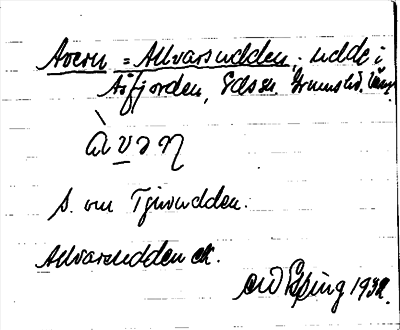 Avern = Allvarsudden, udde i
Åsfjorden, Edssn. Grumshd. Värml.
à v ə ŋ
S. om Tjuvudden.
Allvarsudden ek.
1932.